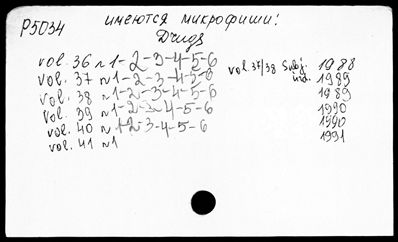 P5034
имеются микрофиши!
Drugs
vol. 36 n 1-2-3-4-5-6 1988
vol. 37 n 1-2-3-4-5-6 vol. 37/38 Subj. ind. 1989
vol. 38 n 1-2-3-4-5-6 1989
vol. 39 n 1-2-3-4-5-6 1990
vol. 40 n 1-2-3-4-5-6 1990
vol. 41 n 1 1991